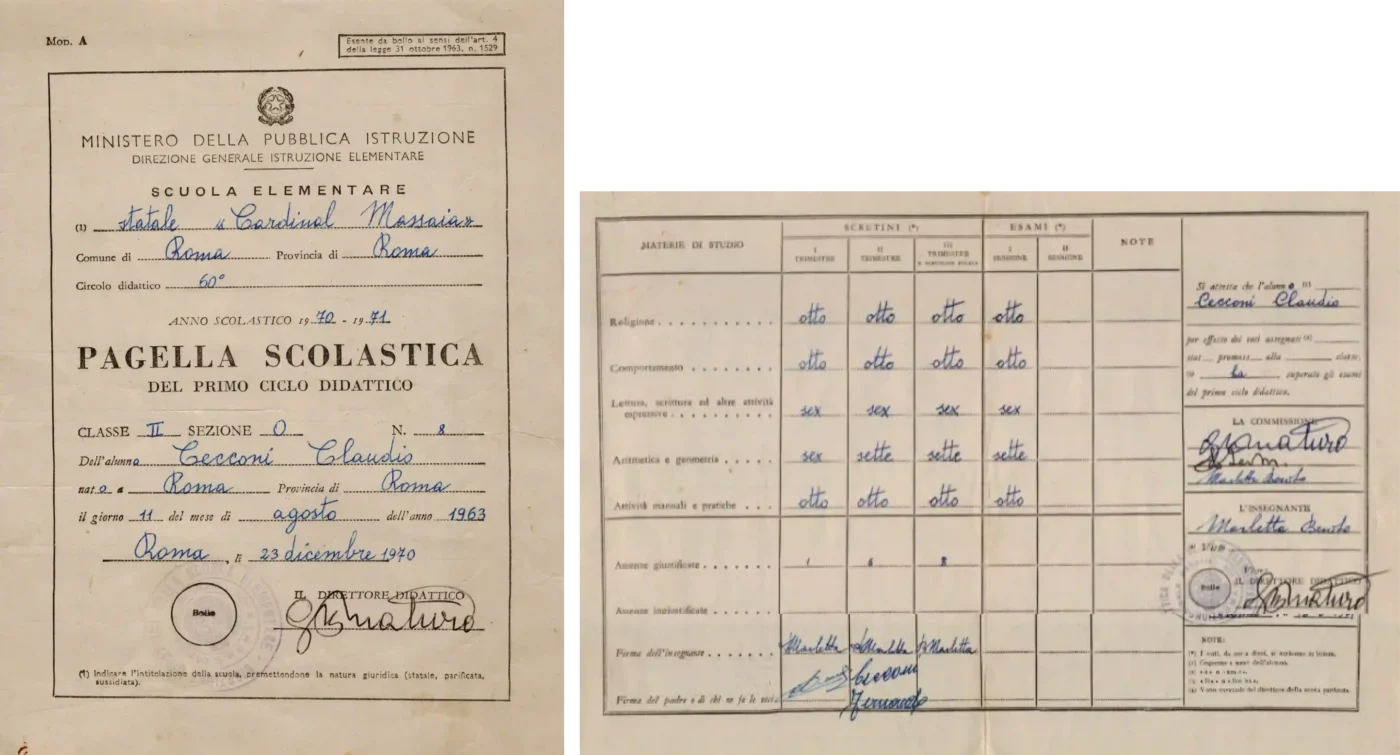 Mod. A
Esente da bollo ai sensi dell'art. 4
della legge 31 ottobre 1963, n. 1529
MINISTERO DELLA PUBBLICA ISTRUZIONE
DIREZIONE GENERALE ISTRUZIONE ELEMENTARE
SCUOLA ELEMENTARE
(1) statale « Cardinal Massaia»
Comune di Roma Provincia di Roma
Circolo didattico 60°
ANNO SCOLASTICO 1970 - 1971
PAGELLA SCOLASTICA
DEL PRIMO CICLO DIDATTICO
CLASSE II SEZIONE O N. 8
Dell'alunno Cecconi Claudio
nato a Roma Provincia di Roma
il giorno 11 del mese di agosto dell'anno 1963
Roma, li 23 dicembre 1970
IL DIRETTORE DIDATTICO
Bollo
(1) Indicare l'intitolazione della scuola, premettendone la natura giuridica (statale, parificata,
sussidiata).
MATERIE DI STUDIO
SCRUTINI (*)
ESAMI (*)
NOTE
I TRIMESTRE
II TRIMESTRE
III TRIMESTRE
I SESSIONE
II SESSIONE
Religione otto otto otto otto
Comportamento otto otto otto otto
Lettura, scrittura ed altre attività
espressive sex sex sex sex
Aritmetica e geometria sex sette sette sette
Attività manuali e pratiche otto otto otto otto
Assenze giustificate 1 6 8
Assenze ingiustificate
Firma dell'insegnante Marletta Marletta Marletta
Firma del padre o di chi ne fa le veci Cecconi
Si attesta che l'alunno (1)
Cecconi Claudio
per effetto dei voti assegnati
stat promoss alla classe.
ha superato gli esami
del primo ciclo didattico.
LA COMMISSIONE
Marletta
L'INSEGNANTE
Marletta
Visto
IL DIRETTORE DIDATTICO
Bollo
NOTE:
(*) I voti, da uno a dieci, si scrivono in lettere.
(1) Cognome e nome dell'alunno.